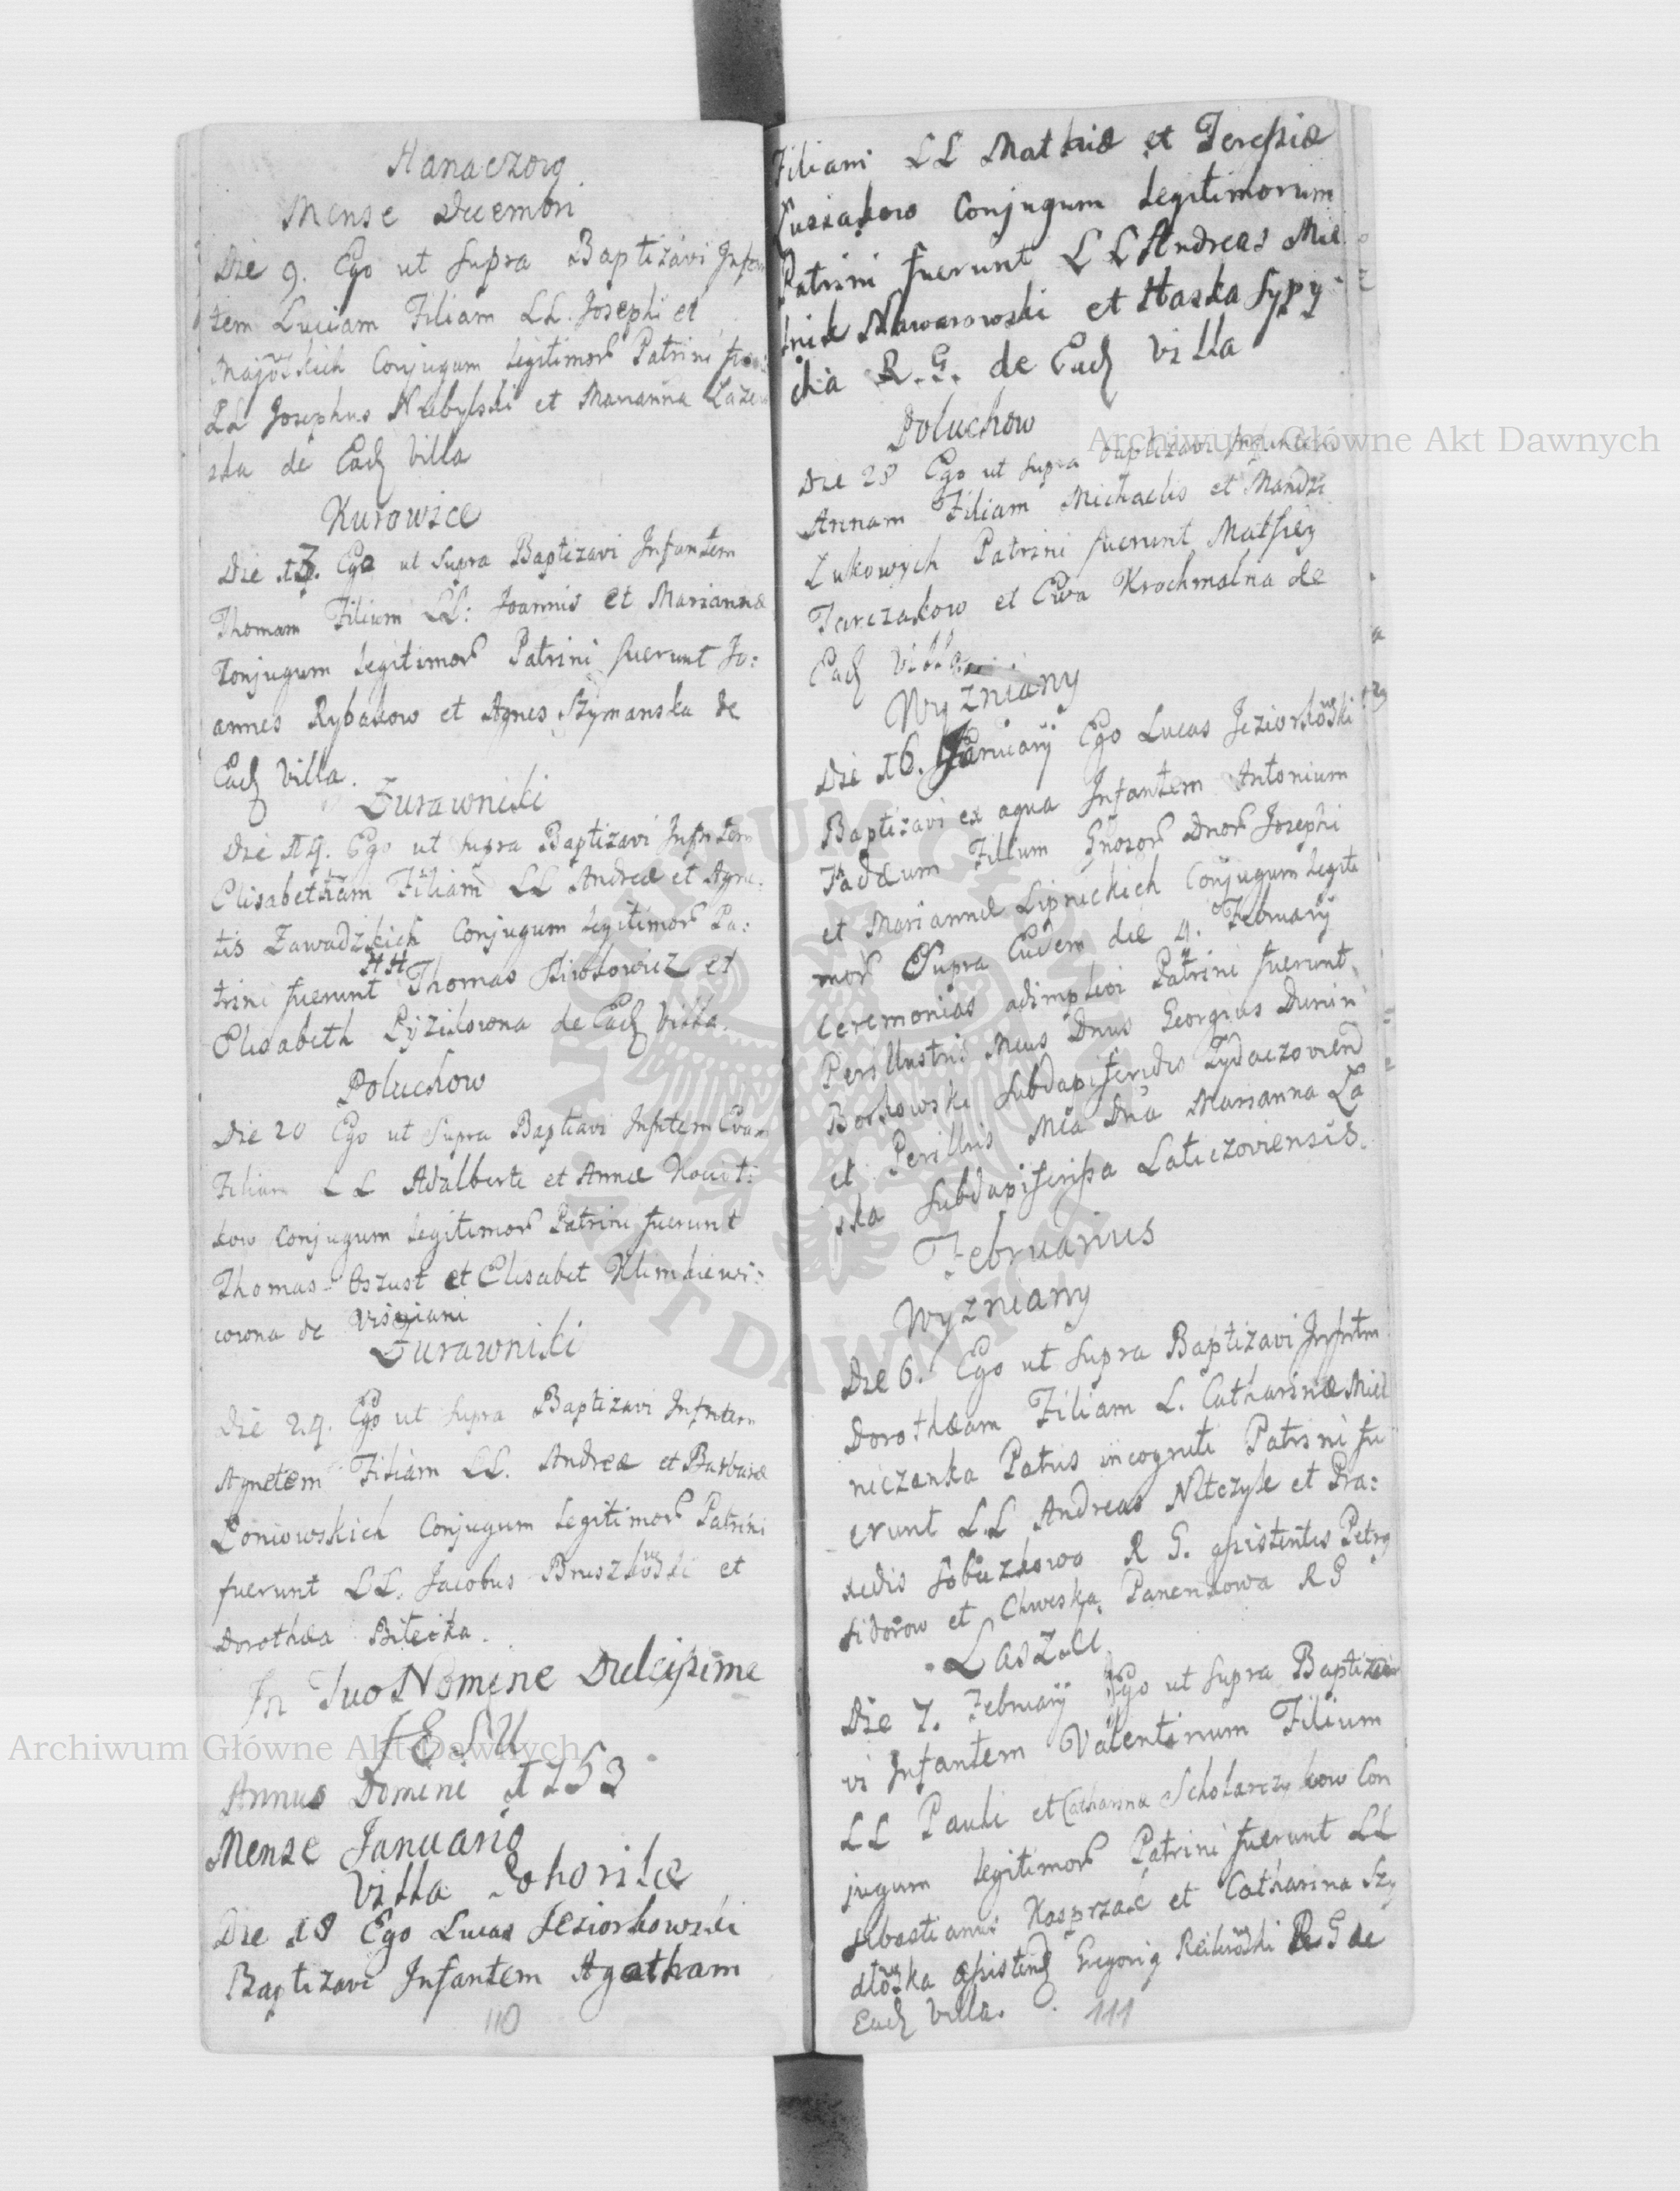 Hanaczow
Mense Decembri
Die 9. Ego ut Supra Baptizavi Infan
tem Luciam Filiam LL. Josephi et
Conjugum Legitimor Patrini
LL Josephus et Marianna
ska de Ead Villa
Kurowice
Die 17. Ego ut Supra Baptizavi Infantem
Thomam Filium LL: Joannis et Mariannæ
Conjugum Legitimor Patrini fuerunt Jo:
annes Rybakow et Agnes Szymanska de
Ead Villa.
Zurawniki
Die 19. Ego ut Supra Baptizavi Infntem
Elisabetham Filiam LL Andreæ et Agne:
tis Zawadzkich Conjugum Legitimor Pa:
HH
trini fuerunt Thomas et
Elisabeth de Ead Villa.
Poluchow
Die 20 Ego ut Supra Baptiavi Infntem Evam
Filiam LL Adalberti et Annæ
kow Conjugum Legitimor Patrini fuerunt
Thomas Oszust et Elisabet Klimkiewi:
cowna de Visniani
Zurawniki
Die 24. Ego ut Supra Baptizavi Infntem
Agnetem Filiam LL. Andreæ et Barbaræ
Loniowskich Conjugum Legitimor Patrini
fuerunt LL. Jacobus Bruszkowski et
Dorothea Bitecka.
In Tuo Nomine Dulcissime
JESU
Annus Domini 1753
Mense Januario
Villa Pohorilce
Die 18 Ego Lucas Jeziorkowski
Baptizavi Infantem Agatham
110
Filiam LL Mathiæ et Teressiæ
Conjugum Legitimorum
Patrini fuerunt LL Andreas Miel
nik Nawarowski et Haska Sypy
cha R. G. de Ead Villa
Poluchow
Die 28 Ego ut Supra Baptizavi Infantem
Annam Filiam Michaelis et
Zukowych Patrini fuerunt Matfiey
Tarczakow et Ewa Krochmalna de
Ead Villa
Wyzniany
Die 16. Januarij Ego Lucas Jeziorkowski
Baptizavi ex aqua Infantem Antonium
Tadæum Filium Gnosor Dnor Josephi
et Mariannæ Lipnickich Conjugum Legiti
mor Supra Eudem die 4. Februarij
Ceremonias adimplevi Patrini fuerunt
Perillustris Meus Dnus Georgius Dunin
Borkowski Subdapiferides Zydaczovien
et Perillris Mea Dna Marianna Za
ska Subdapiferissa Laticzoviensis.
Februarius
Wyzniany
Die 6. Ego ut Supra Baptizavi Infntm
Dorothæam Filiam L. Catharinæ Miel
niczanka Patris incogniti Patrini fu
erunt LL Andreas et Pra:
xedis R G. assistentes Petro
Sidorow et Chweska Panenkowa RG
Ladance
Die 7. Februarij Ego ut Supra Baptiza
vi Infantem Valentinum Filium
LL Pauli et Catharinæ Scholarczykow Con
jugum Legitimor Patrini fuerunt LL
Sebastianus Kasprzak et Catharina Szy
dłowska assistend RG de
Ead Villa.
111
Archiwum Główne Akt Dawnych
Archiwum Główne Akt Dawnych
ARCHIWUM GŁÓWNE AKT DAWNYCH